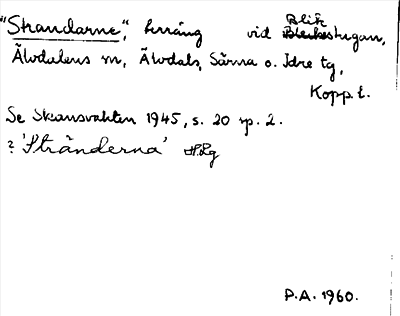 "Strandarne", terräng vid Blik Blekestugan,
Älvdalens sn, Älvdals, Särna o. Idre tg,
Kopp. l.
Se Skansvakten 1945, s. 20 sp. 2.
? 'Stränderna' H.Lg
P.A. 1960.